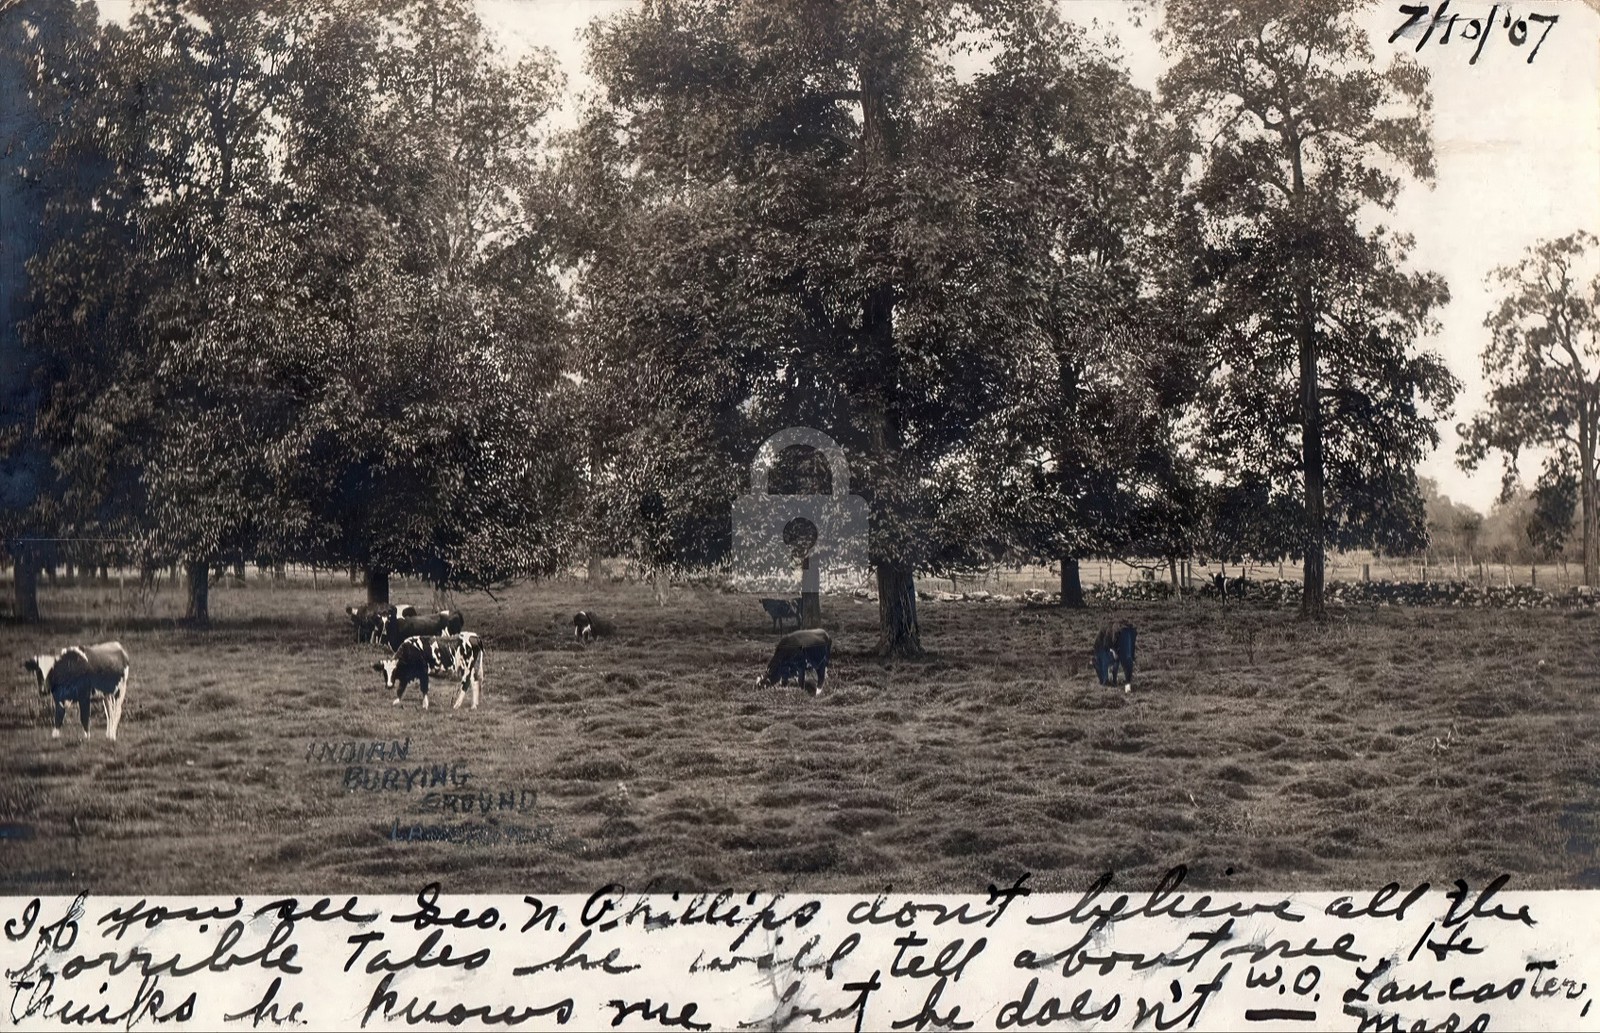 7/10/'07
INDIAN
BURYING
GROUND
LANCASTER
If you see Geo. N. Phillips don't believe all the
horrible tales he will tell about me. He
thinks he knows me but he doesn't — W.O. Lancaster,
Mass